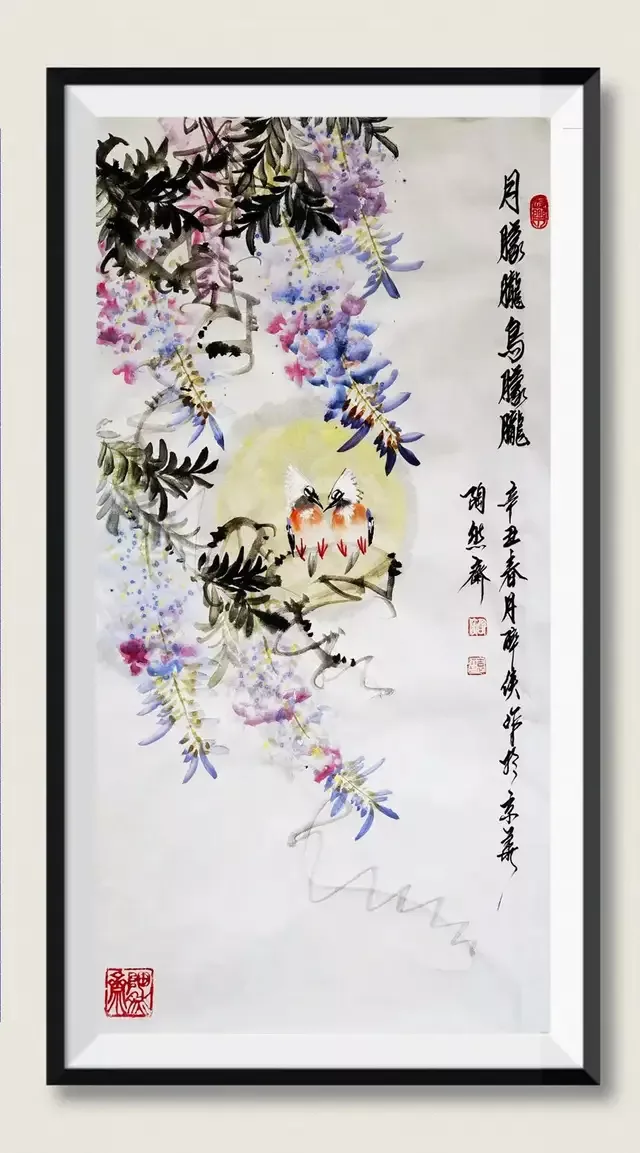 月朦朧鳥朦朧
辛丑春月醉侠作於京華
陶然齋